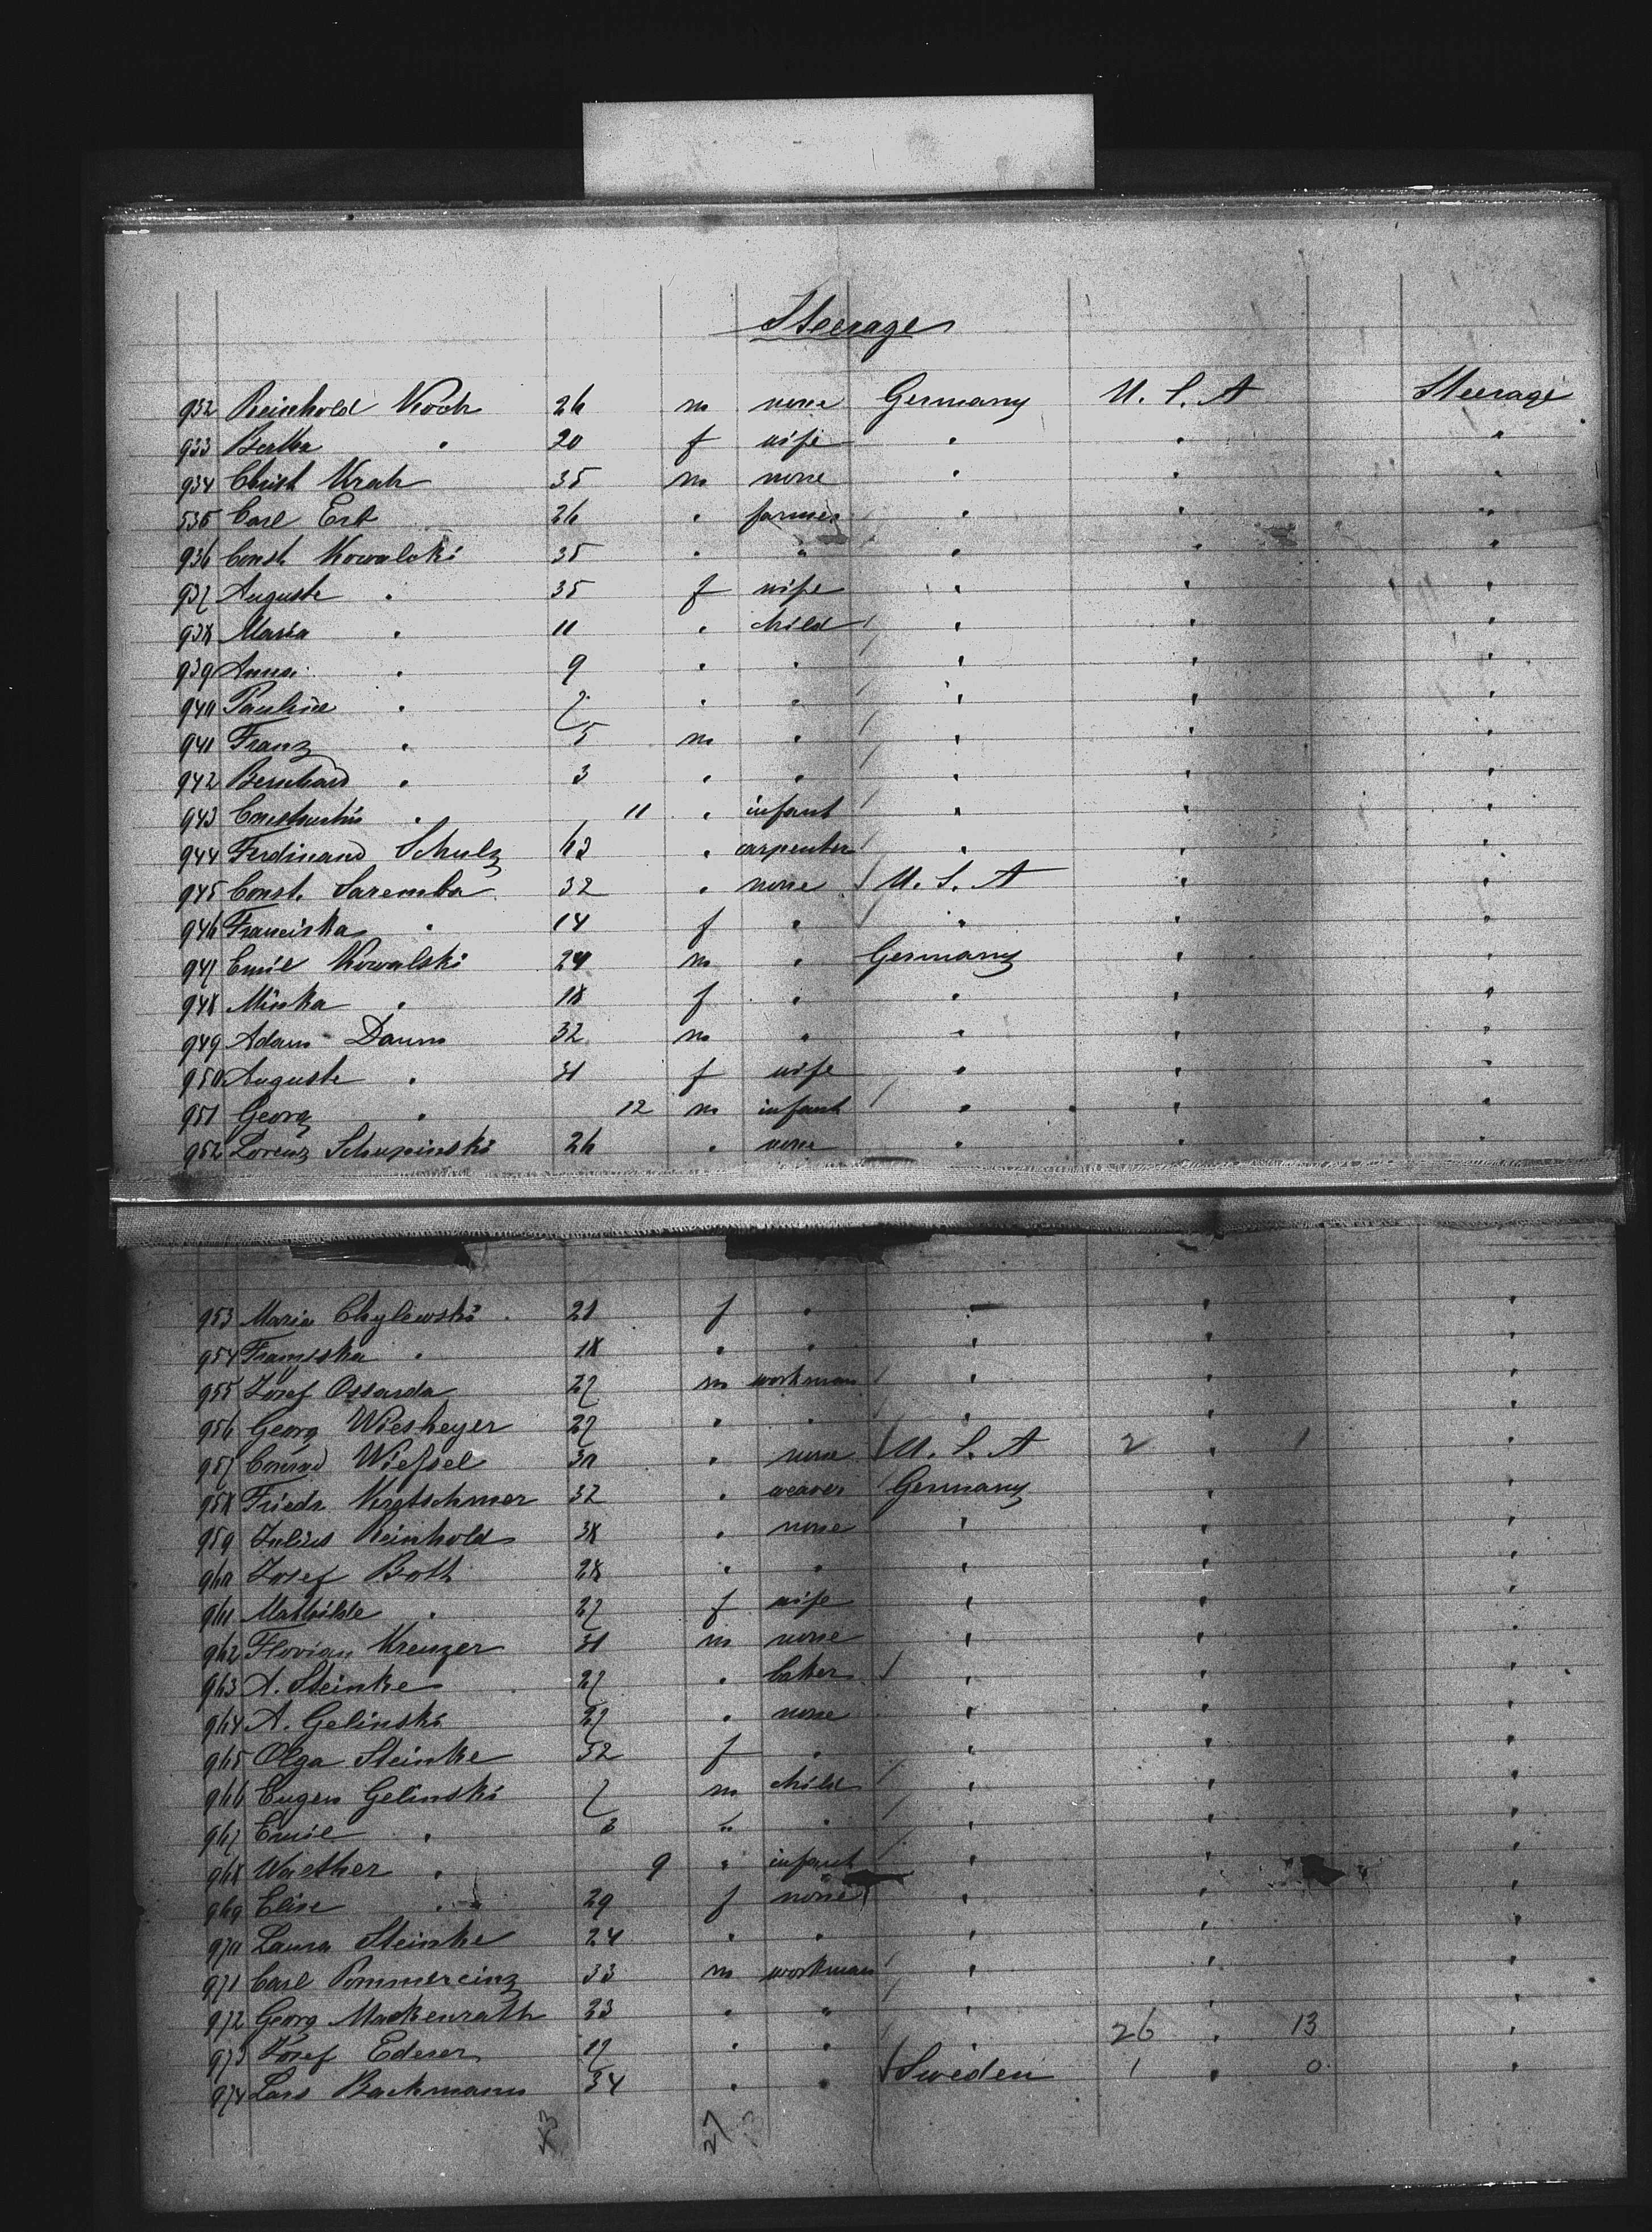 Steerage
932 Reinhold Koch 26 m none Germany U. S. A Steerage
933 Bertha " 20 f wife " " "
934 Christ Krah 35 m none " " "
535 Carl Erb 26 " farmer " " "
936 Const Kowalski 35 " " " " "
937 Auguste " 35 f wife " " "
938 Maria " 11 " child " " "
939 Anna " 9 " " " " "
940 Pauline " 7 " " " " "
941 Franz " 5 m " " " "
942 Bernhard " 3 " " " " "
943 Constantin " 11 " infant " " "
944 Ferdinand Schulz 63 " carpenter " " "
945 Const. Saremba 32 " none U. S. A " "
946 Franciska " 14 f " " " "
947 Emil Kowalski 24 m " Germany " "
948 Minka " 18 f " " " "
949 Adam Daum 32 m " " " "
950 Auguste " 31 f wife " " "
951 Georg " 12 m infant " " "
952 Lorenz Schupinski 26 " none " " "
953 Maria Chylewski 21 f " " " "
954 Franziska " 18 " " " " "
955 Josef Ossarda 27 m workman " " "
956 Georg Wiesheyer 27 " " " " "
957 Conrad Wiessel 30 " none U. S. A 2 " 1 "
958 Friedr Kretschmer 32 " weaver Germany " "
959 Julius Reinhold 38 " none " " "
960 Josef Both 28 " " " " "
961 Mathilde " 27 f wife " " "
962 Florian Kreuzer 31 m none " " "
963 A. Steinke 27 " baker " " "
964 A. Gelinski 27 " none " " "
965 Olga Steinke 32 f " " " "
966 Eugen Gelinski 7 m child " " "
967 Emil " 3 " " " " "
968 Walther " 9 " infant " " "
969 Elise " 29 f none " " "
970 Laura Steinke 24 " " " " "
971 Carl Pommereinz 33 m workman " " "
972 Georg Mackenrath 23 " " " " "
973 Josef Ederer 17 " " " 26 " 13 "
974 Lars Backmann 34 " " Sweden 1 " 0 "
27